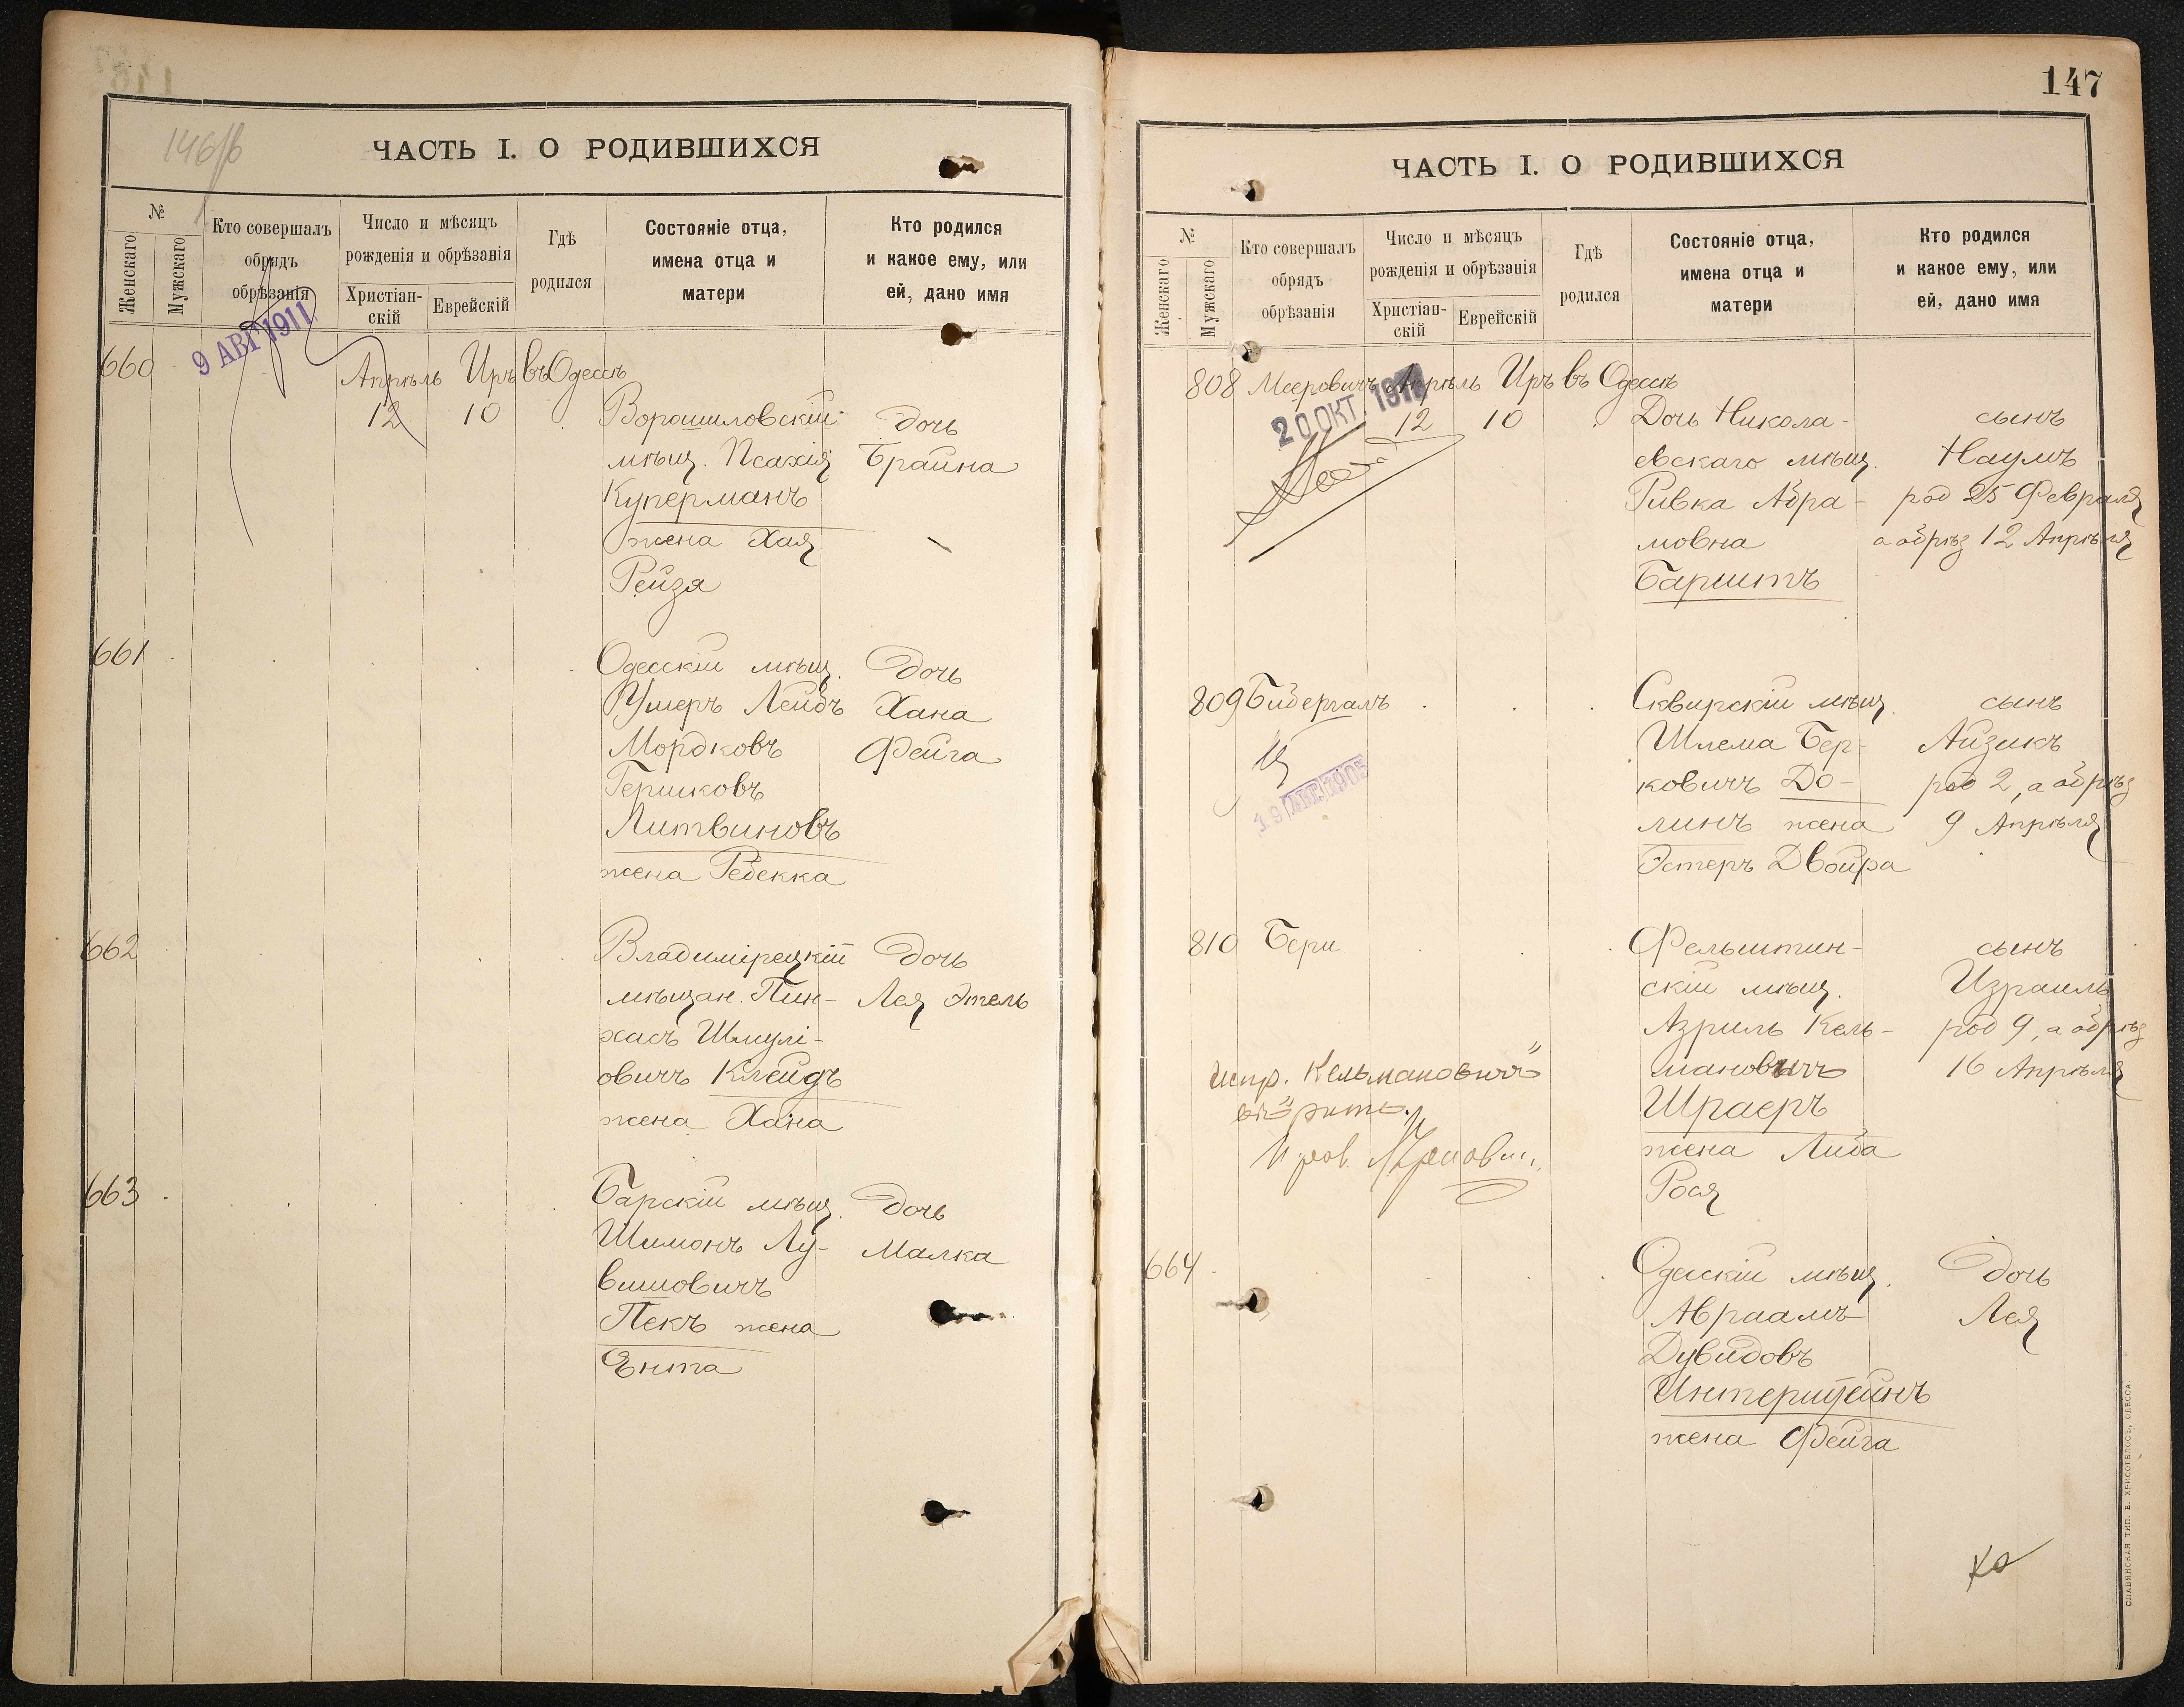 146/б
ЧАСТЬ I. О РОДИВШИХСЯ
№
Женскаго
Мужскаго
Кто совершалъ
обрядъ
обрѣзанія
Число и мѣсяцъ
рожденія и обрѣзанія
Христіан-
скій
Еврейскій
Гдѣ
родился
Состояніе отца,
имена отца и
матери
Кто родился
и какое ему, или
ей, дано имя
9 АВГ 1911
660 Апрѣль Иръ въ Одессѣ
12 10 Ворошиловскій дочь
мѣщ. Псахія Брайна
Куперманъ
жена Хая
Рейзя
661 Одесскій мѣщ. дочь
Ушеръ Лейбъ Хана
Мордковъ Фейга
Гершковъ
Литвиновъ
жена Ребекка
662 Владимірецкій дочь
мѣщан. Пин- Лея Этель
хасъ Шмулі-
овичъ Клейдъ
жена Хана
663 Барскій мѣщ. дочь
Шимонъ Лу- Малка
вишовичъ
Пекъ жена
Ента
147
ЧАСТЬ I. О РОДИВШИХСЯ
№
Женскаго
Мужскаго
Кто совершалъ
обрядъ
обрѣзанія
Число и мѣсяцъ
рожденія и обрѣзанія
Христіан-
скій
Еврейскій
Гдѣ
родился
Состояніе отца,
имена отца и
матери
Кто родился
и какое ему, или
ей, дано имя
808 Мееровичъ Апрѣль Иръ въ Одессѣ
20 ОКТ. 1911
12 10 Дочь Никола- сынъ
евскаго мѣщ. Наумъ
Ривка Абра- род 25 Февраля
мовна а обрѣз 12 Апрѣля
Барштъ
809 Бидергалъ Сквирскій мѣщ. сынъ
Шлема Бер- Айзикъ
ковичъ До- род 2, а обрѣз
линъ жена 9 Апрѣля
Эстеръ Двойра
19 1905
810 Бери Фельштин- сынъ
скій мѣщ. Израиль
Азриль Кель- род 9, а обрѣз
мановичъ 16 Апрѣля
Шраеръ
жена Либа
Рося
испр. Кельмановичъ"
664 Одесскій мѣщ. дочь
Авраамъ Лея
Дувидовъ
Интерштейнъ
жена Фейга
СЛАВЯНСКАЯ ТИП. Е. ХРИСОГЕЛОСЪ, ОДЕССА.